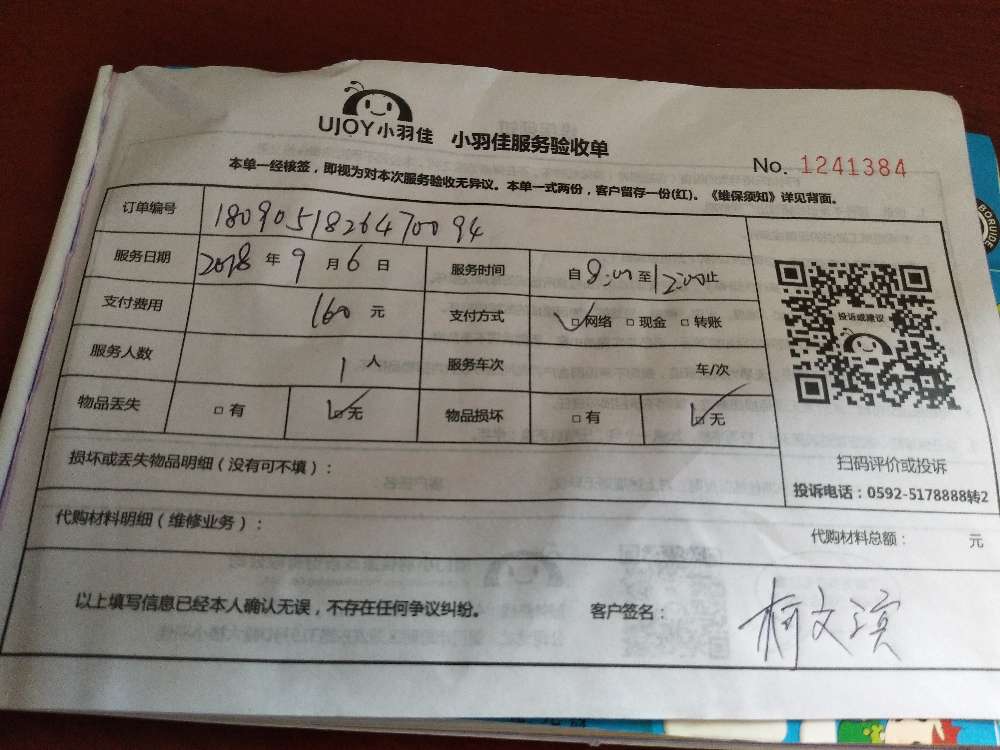 UJOY小羽佳 小羽佳服务验收单
No. 1241384
本单一经核签,即视为对本次服务验收无异议。本单一式两份,客户留存一份(红)。《维保须知》详见背面。
订单编号 1809051826470094
服务日期 2018 年 9 月 6 日 服务时间 自 8:00 至 12:00 止
支付费用 160 元 支付方式 □网络 □现金 □转账
投诉或建议
服务人数 1 人 服务车次 车/次
物品丢失 □有 □无 物品损坏 □有 □无
扫码评价或投诉
损坏或丢失物品明细(没有可不填):
投诉电话:0592-5178888转2
代购材料明细(维修业务): 代购材料总额: 元
以上填写信息已经本人确认无误,不存在任何争议纠纷。 客户签名: 柯文滨
BORUIDE